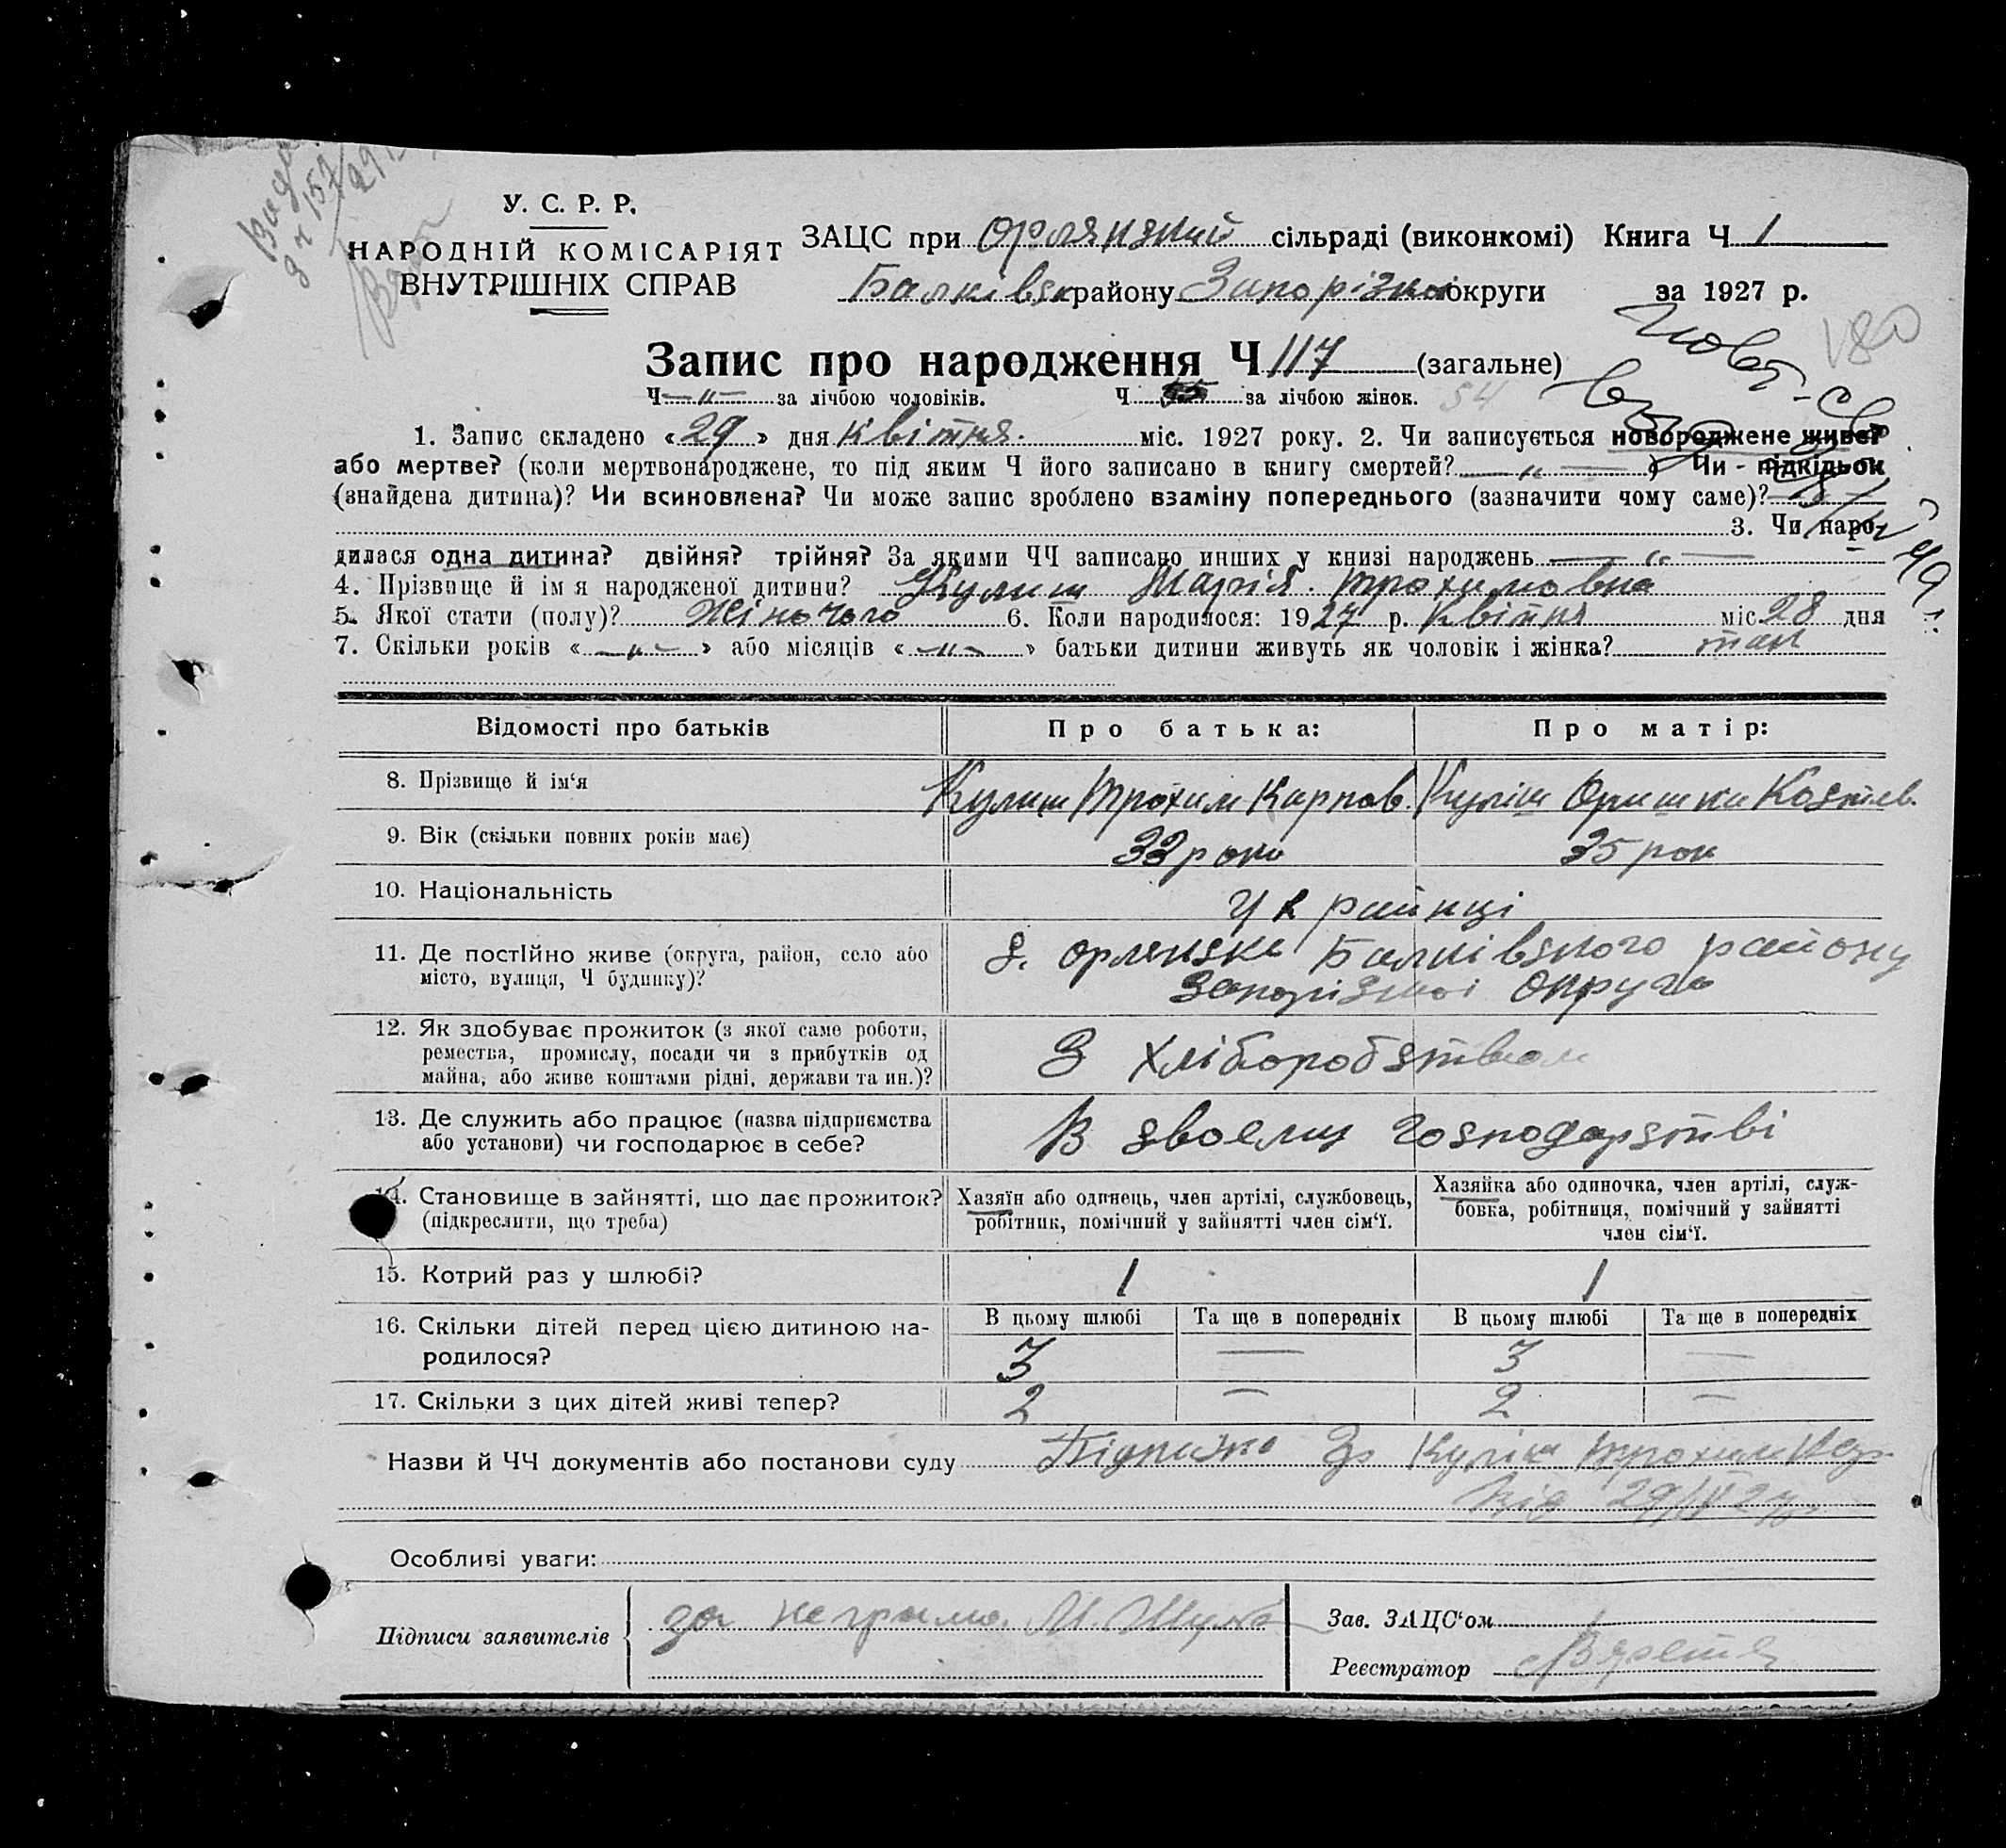 У. С. Р. Р.
НАРОДНІЙ КОМІСАРІЯТ
ВНУТРІШНІХ СПРАВ
ЗАЦС при Орлянский сільраді (виконкомі) Книга Ч 1
Балківськ району Запорізкои округи за 1927 р.
Запис про народження Ч 117 (загальне)
Ч —"— за лічбою чоловіків. Ч 55 за лічбою жінок. 54
1. Запис складено «29» дня квітня. міс. 1927 року. 2. Чи записується новороджене живе?
або мертве? (коли мертвонароджене, то під яким Ч його записано в книгу смертей? —"— ) Чи - підкідьок
(знайдена дитина)? Чи всиновлена? Чи може запис зроблено взаміну попереднього (зазначити чому саме)?
3. Чи наро-
дилася одна дитина? двійня? трійня? За якими ЧЧ записано инших у книзі народжень —"—
4. Прізвище й ім я народженої дитини? Кулиш Марія. Трохимовна
5. Якої стати (полу)? Жіночого 6. Коли народилося: 1927 р. Квітня міс. 28 дня
7. Скільки років «—"—» або місяців «—"—» батьки дитини живуть як чоловік і жінка? так
Відомості про батьків Про батька: Про матір:
8. Прізвище й ім'я Кулиш Трохим Карпов. Куліш Оришка Костев.
9. Вік (скільки повних років має) 33 роки 35 рок
10. Національність Українці
11. Де постійно живе (округа, район, село або С. Орлянська Балківского району
місто, вулиця, Ч будинку)? Запорізкоі Округи
12. Як здобуває прожиток (з якої саме роботи,
ремества, промислу, посади чи з прибутків од З хліборобством
майна, або живе коштами рідні, держави та ин.)?
13. Де служить або працює (назва підприємства В своему господарстві
або установи) чи господарює в себе?
14. Становище в зайнятті, що дає прожиток? Хазяїн або одинець, член артілі, службовець, Хазяйка або одиночка, член артілі, служ-
(підкреслити, що треба) робітник, помічний у зайнятті член сім'ї. бовка, робітниця, помічний у зайнятті
член сім'ї.
15. Котрий раз у шлюбі? 1 1
16. Скільки дітей перед цією дитиною на- В цьому шлюбі Та ще в попередніх В цьому шлюбі Та ще в попередніх
родилося? 3 — 3 —
17. Скільки з цих дітей живі тепер? 2 — 2 —
Назви й ЧЧ документів або постанови суду Куліш Трохим
від 29/IV 27р.
Особливі уваги:
Підписи заявителів за неграмо. М.
Зав. ЗАЦС'ом
Реєстратор